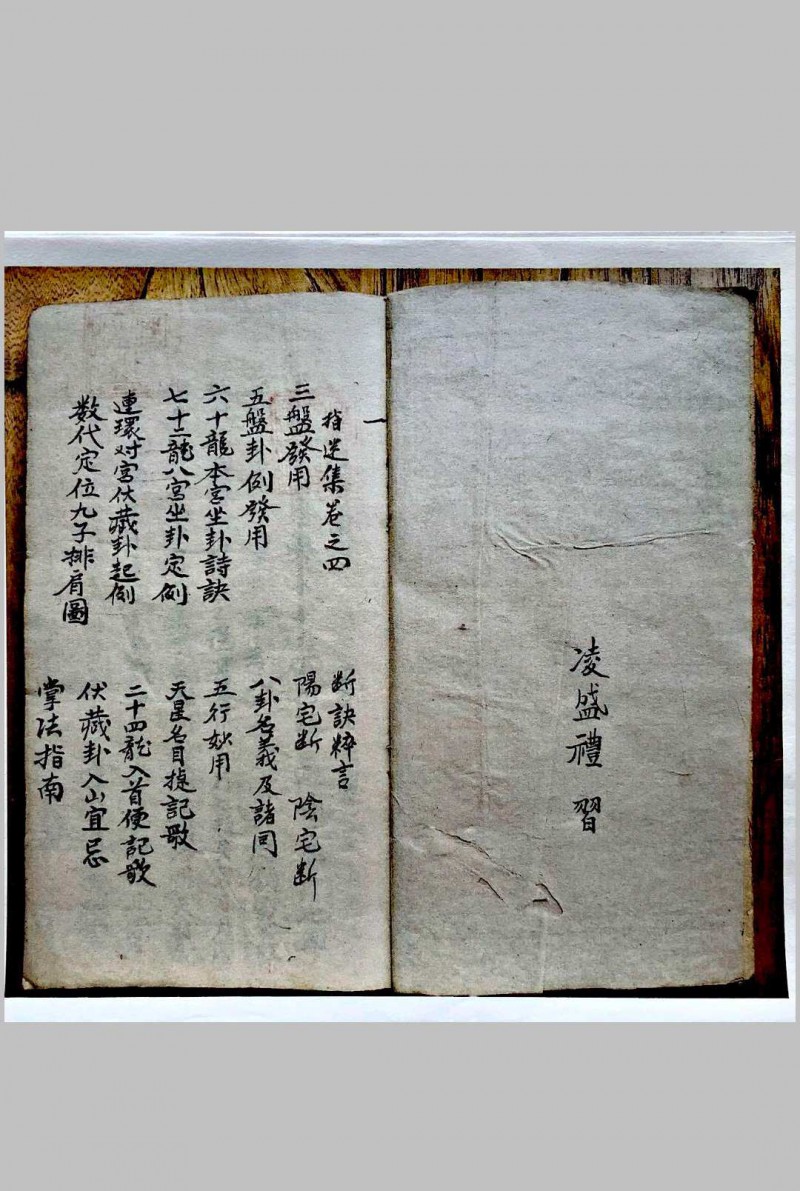 凌盛禮 習
一
指迷集卷之四
三盤發用
五盤卦例發用
六十龍本宮坐卦詩訣
七十二龍八宮坐卦定例
連環对宮伏藏卦起例
数代定位九子排肩圖
断訣粹言
陽宅断 陰宅断
八卦名義及諸同
五行妙用
天星名目捷記歌
二十四龍入首便記歌
伏藏卦入山宜忌
掌法指南